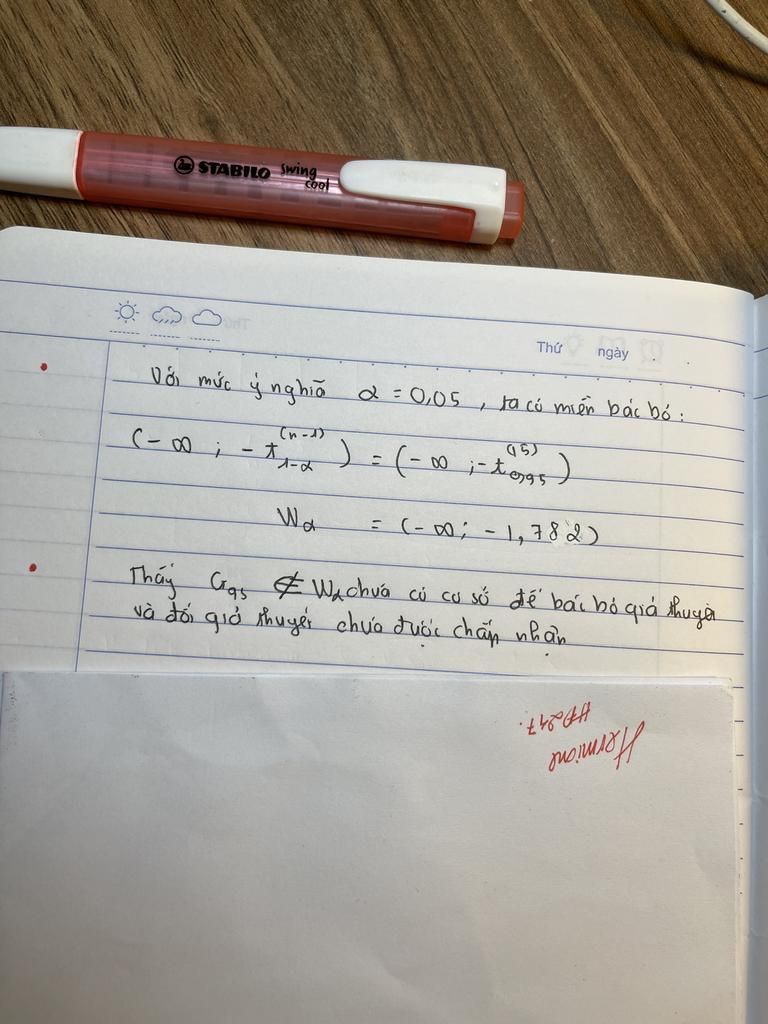 STABILO swing cool
Thứ ngày
Với mức ý nghĩa α = 0,05, ta có miền bác bỏ:
(-∞ ; -t_{1-α}^{(n-1)}) = (-∞ ; -t_{0,95}^{(15)})
W_α = (-∞; -1,782)
Thấy G_{qs} ∉ W_α chưa có cơ sở để bác bỏ giả thuyết
và đối giả thuyết chưa được chấp nhận
Hermione
HP247.